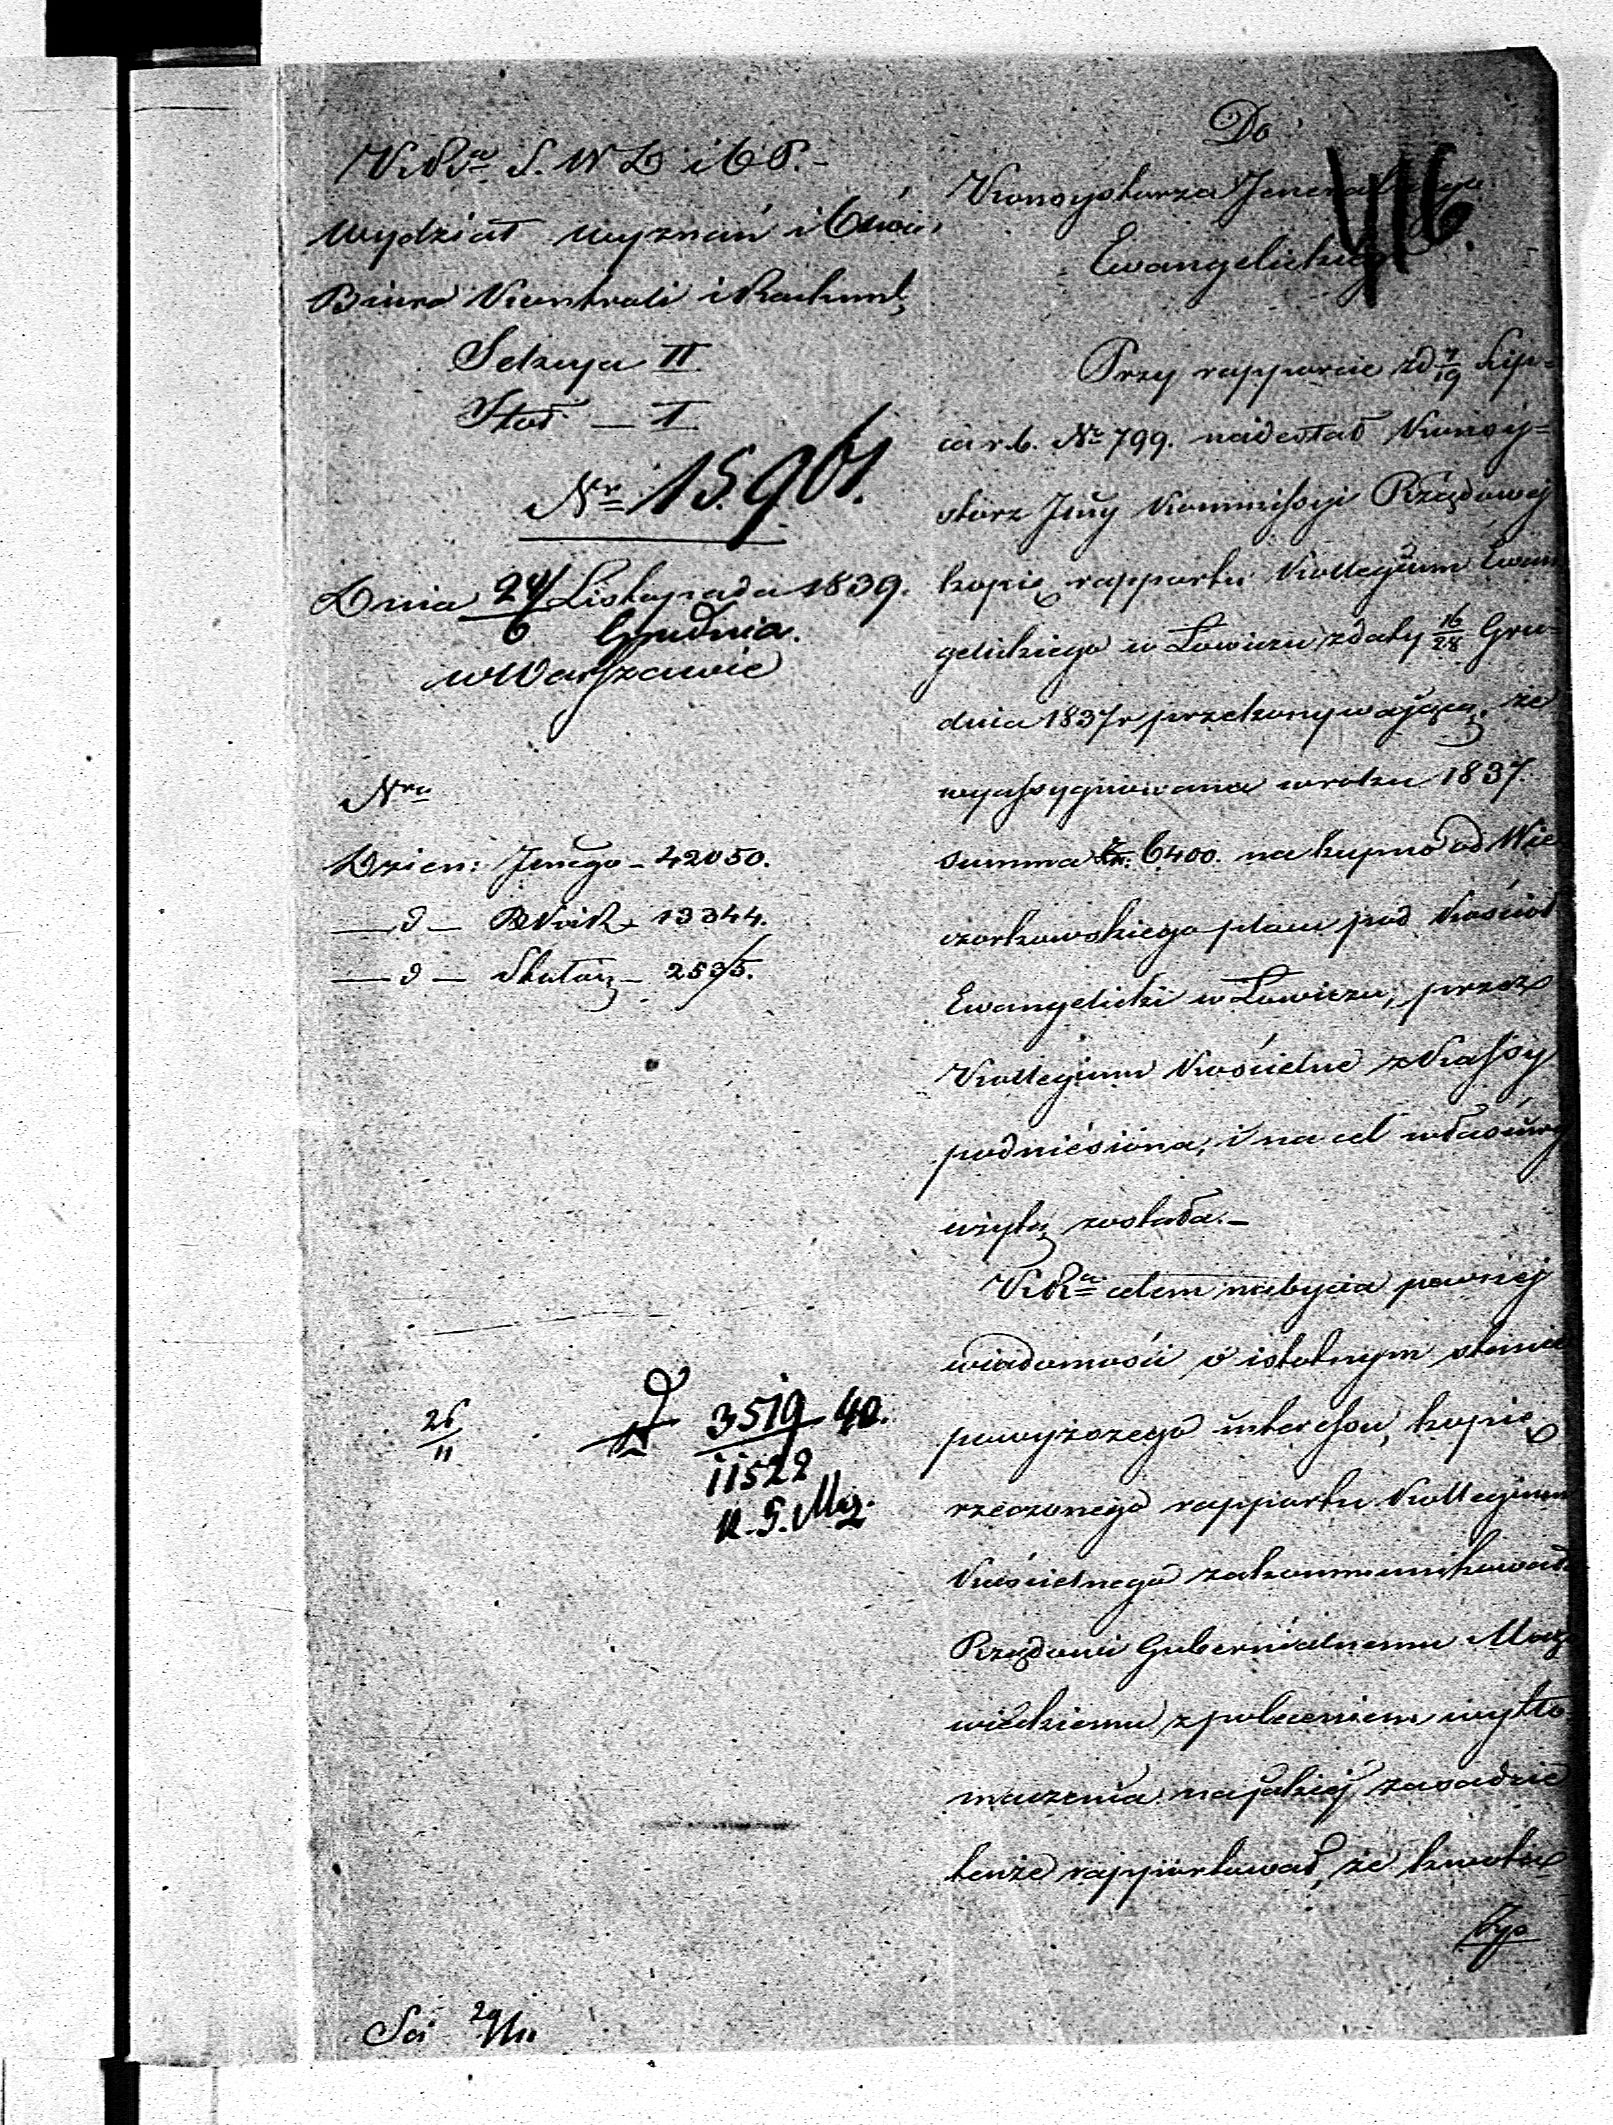 K. R.a S. W. D. i O. P.
Wydział Wyznań i Oświe:
Biuro Kontroli i Rachunk:
Sekcya II
Stół — I
Nr 15,961.
Dnia 24/6 Listopada 1839.
Grudnia
w Warszawie
Nra
Dzien: Jmego - 42050.
— d — 13344.
— d — 2535.
26/11
3519 40.
11522
R. G. Maz.
29/11
Do
Konsystorza Jeneralnego
Ewangelickiego
416.
Przy rapporcie zd 7/19 Lip=
ca r. b. No 799. nadesłał Konsy=
storz Jlny Kommissyi Rządowej
kopię rapportu Kollegium Ewan
gelickiego w Łowiczu z daty 16/28 Gru=
dnia 1837 r przekonywającą, że
wyassygnowana w roku 1837
summa 6400. na kupno od Wie
czorkowskiego placu pod Kościół
Ewangelicki w Łowiczu, przez
Kollegium Kościelne z Kassy
podniésióna, i na cel właściwy
użytą została. —
K. R.a celem nabycia pewnéj
wiadomości o istotnym stanie
powyższego interessu, kopię
rzeczonego rapportu Kollegium
Kościelnego zakommunikowała
Rządowi Gubernialnemu Mazo
wieckiemu z poleceniem wytło
maczenia na jakiéj zasadzie
tenże rapportował, że kwota